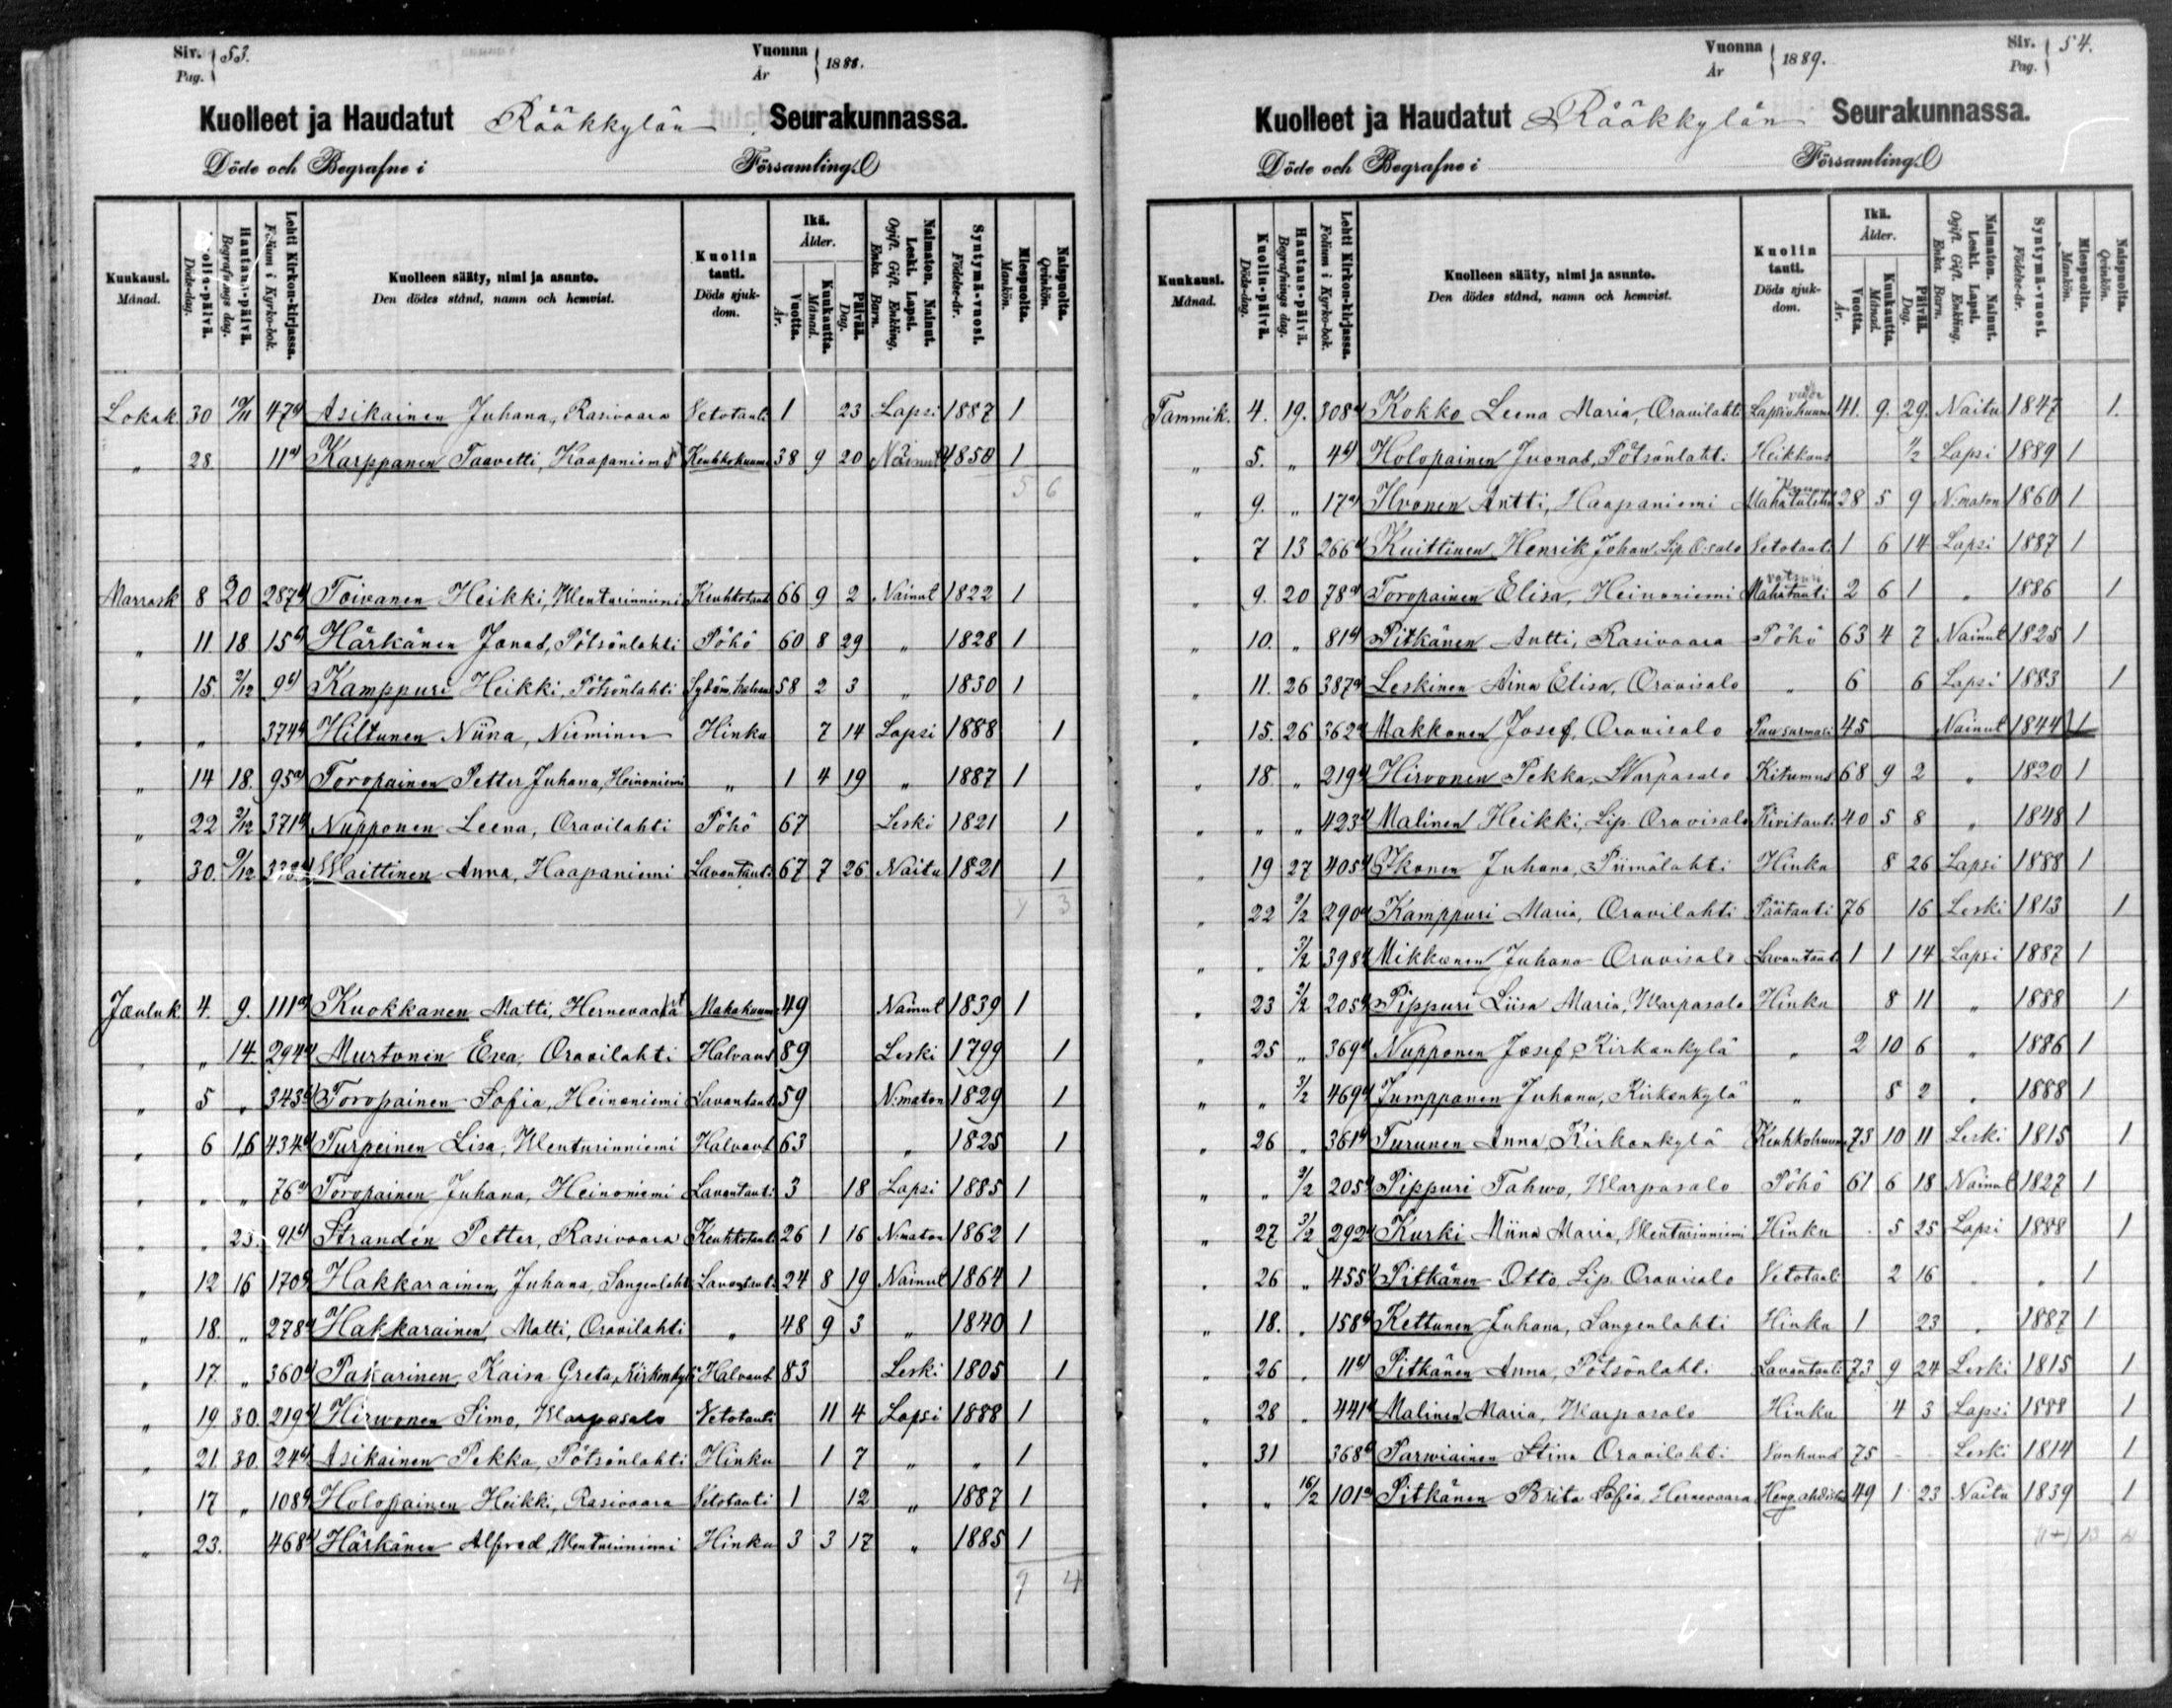 Siv. Pag. 53.
Vuonna År 1888.
Kuolleet ja Haudatut Rääkkylän Seurakunnassa.
Döde och Begrafne i Församling.
Kuukausi. Månad.
Kuolin-päivä. Döds-dag.
Hautaus-päivä. Begrafnings dag.
Lehti Kirkon-kirjassa. Folium i Kyrko-bok.
Kuolleen sääty, nimi ja asunto. Den dödes stånd, namn och hemvist.
Kuolin tauti. Döds sjuk-dom.
Ikä. Ålder.
Vuotta. År.
Kuukautta. Månad.
Päivää. Dag.
Naimaton. Nainut. Leski. Lapsi. Ogift. Gift. Enkling, Enka. Barn.
Syntymä-vuosi. Födelse-år.
Miespuolta. Mankön.
Naispuolta. Qvinkön.
Lokak. 30 10/11 47 Asikainen Juhana, Rasivaara Vetotauti 1 23 Lapsi 1887 1
„ 28 11 Karppanen Taavetti, Haapaniemi Keuhkokuume 38 9 20 Nainut 1850 1
5 6
Marrask 8 20 287 Toivanen Heikki, Wenturinniemi Keuhkotauti 66 9 2 Nainut 1822 1
„ 11 18 15 Härkänen Jonas, Pötsönlahti Pöhö 60 8 29 „ 1828 1
„ 15 2/12 9 Kamppuri Heikki, Pötsönlahti Sydäm. halvaus 58 2 3 „ 1830 1
„ „ 374 Hiltunen Niina, Nieminen Hinku 7 14 Lapsi 1888 1
„ 14 18. 95 Toropainen Petter Juhana, Heinoniemi „ 1 4 19 „ 1887 1
„ 22 2/12 371 Nupponen Leena, Oravilahti Pöhö 67 Leski 1821 1
„ 30. 9/12 Waittinen Anna, Haapaniemi Lavantauti 67 7 26 Naitu 1821 1
3
Jouluk 4. 9. 111 Kuokkanen Matti, Hernevaara Mahakuume 49 Nainut 1839 1
„ „ 14 294 Murtonen Eva, Oravilahti Halvaus 89 Leski 1799 1
„ 5 „ 343 Toropainen Sofia, Heinoniemi Lavantauti 59 N:maton 1829 1
„ 6 16 434 Turpeinen Lisa, Wenturinniemi Halvaus 63 „ 1825 1
„ „ „ 76 Toropainen Juhana, Heinoniemi Lavantauti 3 18 Lapsi 1885 1
„ „ 23. 91 Strandén Petter, Rasivaara Keuhkotauti 26 1 16 N:maton 1862 1
„ 12 16 170 Hakkarainen, Juhana, Sangenlahti Lavantauti 24 8 19 Nainut 1864 1
„ 18. „ 278 Hakkarainen, Matti, Oravilahti „ 48 9 3 „ 1840 1
„ 17. „ 360 Pakarinen, Kaisa Greta, Kirkonkylä Halvaus 83 Leski 1805 1
„ 19. 30. 219 Hirwonen Simo, Warpasalo Vetotauti 11 4 Lapsi 1888 1
„ 21. 30. 24 Asikainen Pekka, Pötsönlahti Hinku 1 7 „ „ 1
„ 17 „ 108 Holopainen Heikki, Rasivaara Vetotauti 1 12 „ 1887 1
„ 23. 468 Härkänen Alfred, Wenturinniemi Hinku 3 3 17 „ 1885 1
9 4
Vuonna År 1889.
Siv. Pag. 54.
Kuolleet ja Haudatut Rääkkylän Seurakunnassa.
Döde och Begrafne i Församling.
Kuukausi. Månad.
Kuolin-päivä. Döds-dag.
Hautaus-päivä. Begrafnings dag.
Lehti Kirkon-kirjassa. Folium i Kyrko-bok.
Kuolleen sääty, nimi ja asunto. Den dödes stånd, namn och hemvist.
Kuolin tauti. Döds sjuk-dom.
Ikä. Ålder.
Vuotta. År.
Kuukautta. Månad.
Päivää. Dag.
Naimaton. Nainut. Leski. Lapsi. Ogift. Gift. Enkling. Enka. Barn.
Syntymä-vuosi. Födelse-år.
Miespuolta. Mankön.
Naispuolta. Qvinkön.
Tammik. 4. 19. 308 Kokko Leena Maria, Oravilahti 41. 9. 29. Naitu 1847 1.
„ 5. „ 4 Holopainen Joonas, Pötsönlahti Heikkous 1/2 Lapsi 1889 1
„ 9. „ 17 Ihvonen Antti, Haapaniemi 28 5 9 N:maton 1860 1
„ 7 13 266 Kuittinen Henrik Johan, Lip. O:salo Vetotauti 1 6 14 Lapsi 1887 1
„ 9. 20 78 Toropainen Elisa, Heinoniemi Mahatauti 2 6 1 „ 1886 1
„ 10. „ 81 Pitkänen Antti, Rasivaara Pöhö 63 4 7 Nainut 1825 1
„ 11. 26 387 Leskinen Aina Elisa, Oravisalo „ 6 6 Lapsi 1883 1
„ 15. 26 362 Makkonen Josef, Oravisalo Puu surmasi 45 Nainut 1844 1
„ 18 „ 219 Hirvonen Pekka, Warpasalo Kitumus 68 9 2 „ 1820 1
„ „ „ 423 Malinen Heikki, Lip. Oravisalo Kivitauti 40 5 8 „ 1848 1
„ 19 27 405 Ikonen Juhana, Piimälahti Hinku 8 26 Lapsi 1888 1
„ 22 2/2 290 Kamppuri Maria, Oravilahti Päätauti 76 16 Leski 1813 1
„ „ 3/2 398 Mikkonen Juhana Oravisalo Lavantauti 1 1 14 Lapsi 1887 1
„ 23 2/2 205 Pippuri Liisa Maria, Warpasalo Hinku 8 11 „ 1888 1
„ 25 „ 369 Nupponen Josef, Kirkonkylä „ 2 10 6 „ 1886 1
„ „ 3/2 469 Jumppanen Juhana, Kirkonkylä „ 8 2 „ 1888 1
„ 26 „ 361 Turunen Anna, Kirkonkylä Keuhkokuume 73 10 11 Leski 1815 1
„ „ 2/2 205 Pippuri Tahwo, Warpasalo Pöhö 61 6 18 Nainut 1827 1
„ 27 3/2 292 Kurki Miina Maria, Wenturinniemi Hinku 5 25 Lapsi 1888 1
„ 26 „ 455 Pitkänen Otto, Lip. Oravisalo Vetotauti 2 16 „ 1
„ 18. „ 158 Kettunen Juhana, Sangenlahti Hinku 1 23 „ 1887 1
„ 26 „ 11 Pitkänen Anna, Pötsönlahti Lavantauti 73 9 24 Leski 1815 1
„ 28 „ 441 Malinen Maria, Warpasalo Hinku 4 3 Lapsi 1888 1
„ 31 368 Parwiainen Stina Oravilahti Vanhuus 75 - - Leski 1814 1
„ „ 16/2 101 Pitkänen Brita Sofia, Hernevaara Heng. ahdistus 49 1 23 Naitu 1839 1
13